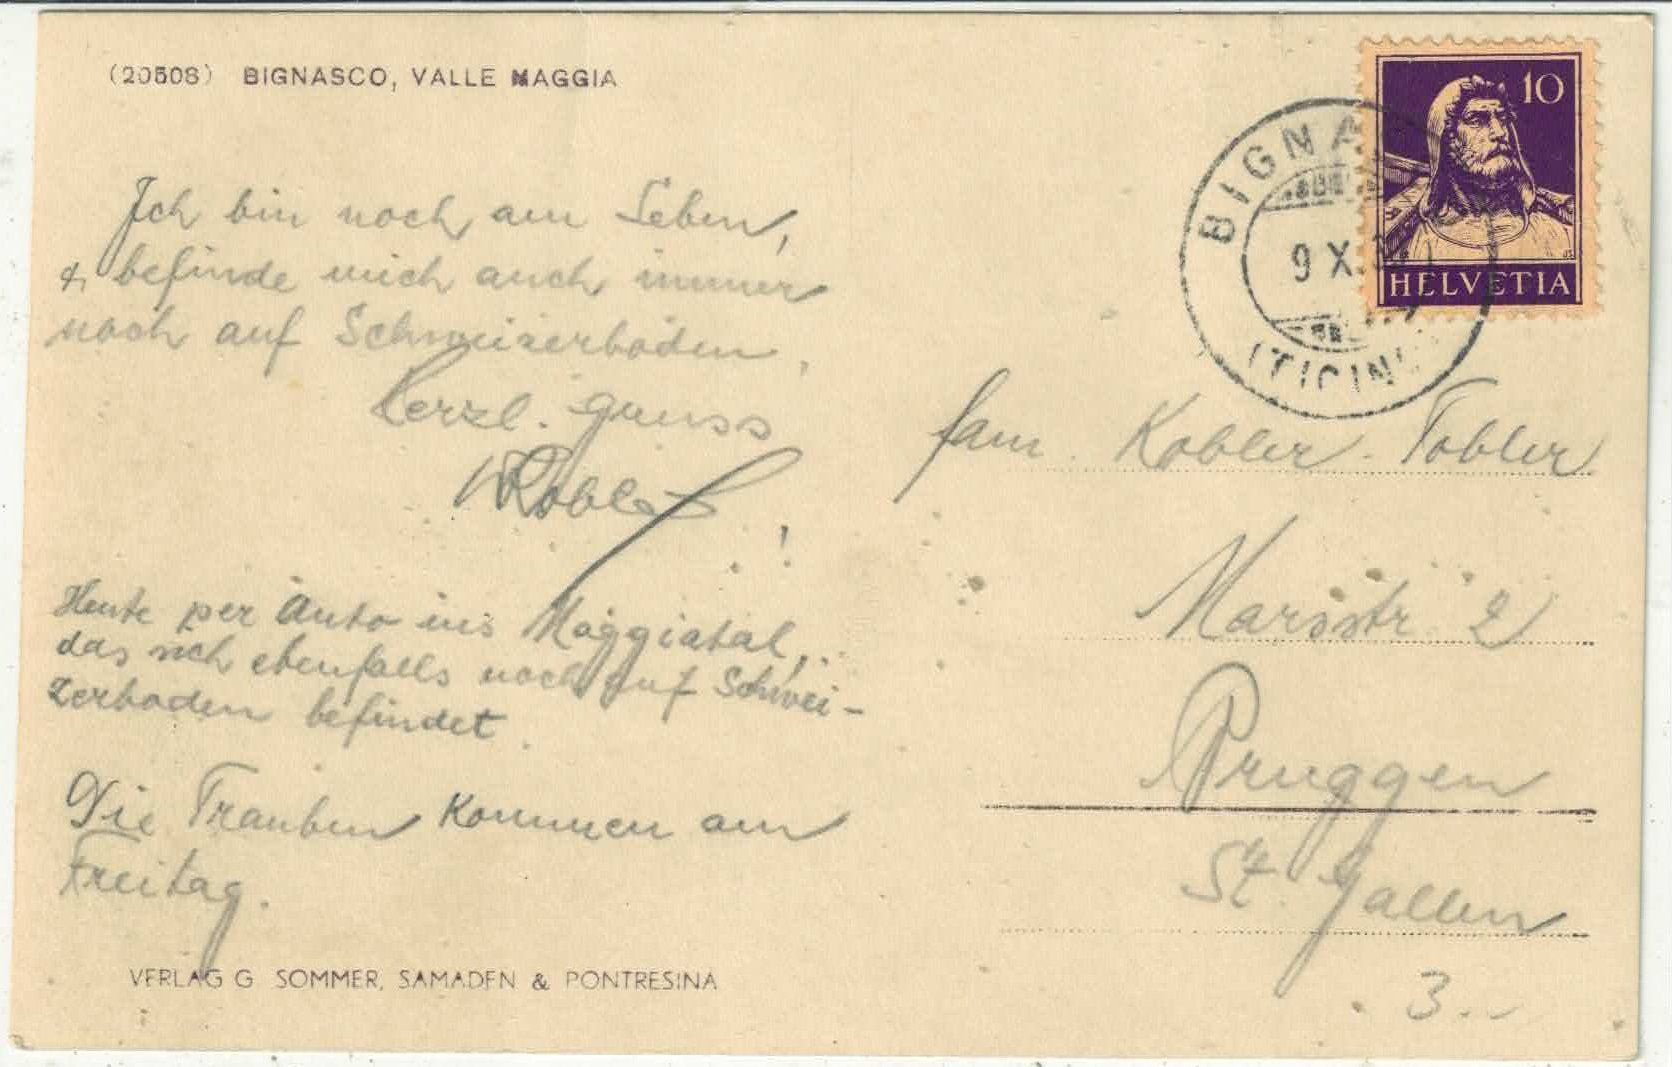 (20508) BIGNASCO, VALLE MAGGIA
10
HELVETIA
BIGNA
9 X.
(TICIN
Ich bin noch am Leben,
& befinde mich auch immer
noch auf Schweizerboden,
Herzl. Gruss
Fam. Kobler-Tobler
Marsstr 2
Bruggen
St Gallen
3..
Heute per Auto ins Maggiatal,
das sich ebenfalls noch auf Schwei-
zerboden befindet.
Die Trauben kommen am
Freitag.
VERLAG G SOMMER, SAMADEN & PONTRESINA